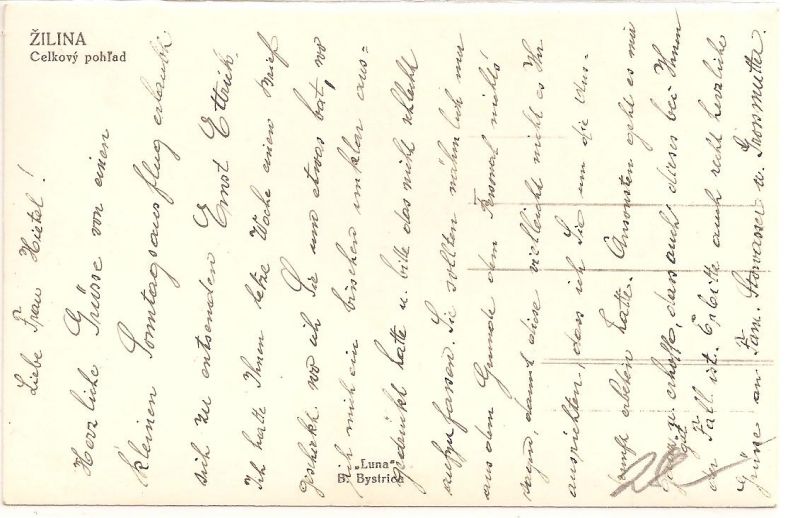 ŽILINA
Celkový pohľad
Liebe Frau Hietel!
Herzliche Grüsse von einen
kleinen Sonntagsausflug erlaubt
sich zu entsenden Ernst Ettrik
Ich hatte Ihnen letze Woche einen Brief
geschickt wo ich Sie um etwas bat, wo
ich mich ein bisschen unklar aus=
gedrückt hatte u. bitte das nicht schlecht
aufzufassen. Sie sollten nähmlich nur
aus dem Grunde dem Personal nichts
sagen, damit diese vielleicht nicht es Ihr
ausrichten, dass ich Sie um die Aus-
kunft erbeten hatte. Ansonsten geht es mir
gut u. erhoffe, dass auch dieses bei Ihnen
der Fall ist. Erbitte auch recht herzliche
Grüsse an Fam. Stowasser u. Grossmutter.
"Luna"
B. Bystrica